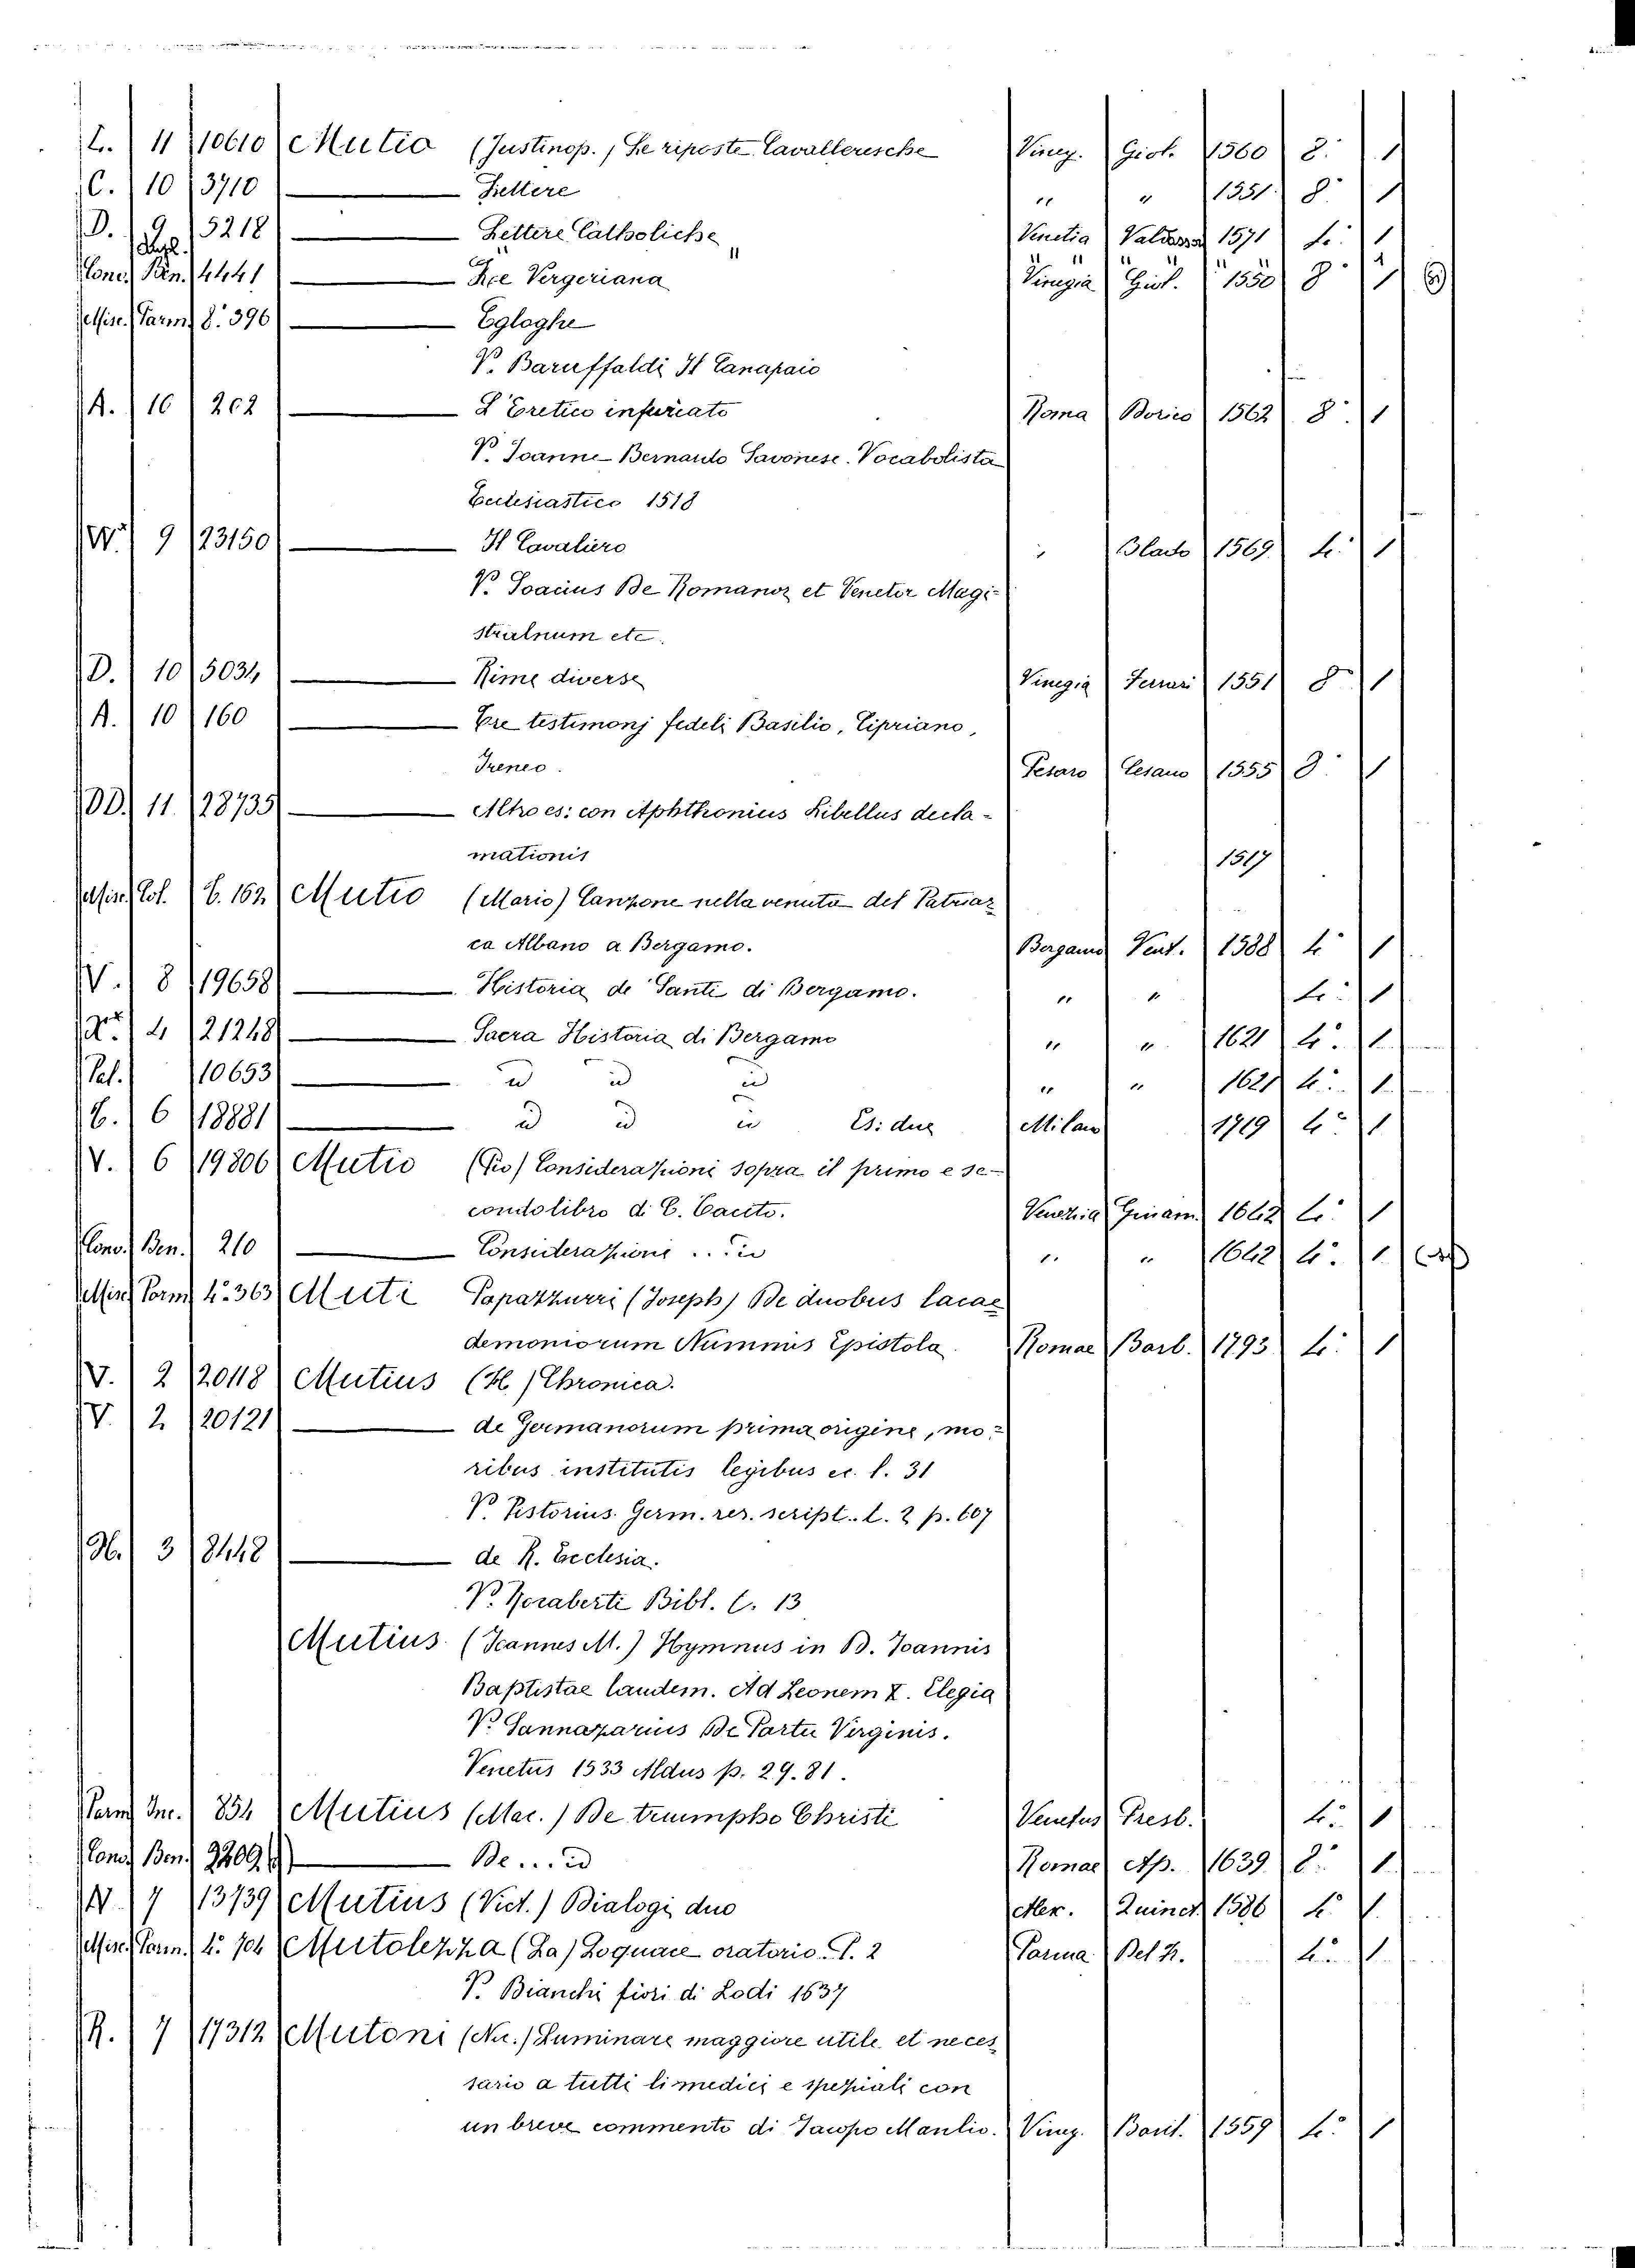 L. 11 10610 Mutio (Justinop.) Le riposte Cavalleresche Vineg. Giol. 1560 8. 1
C. 10 3710 — Lettere " " 1551 8. 1
D. 9 5218 — Lettere Catholiche Venetia 1571 4. 1
Conv. 4441 — Le Vergeriana Vinegia Giol. 1550 8. 1
Misc. Parm. 8. 396 — Egloghe
V. Baruffaldi Il Canapaio
A. 10 202 — L'Eretico infuriato Roma Dorico 1562 8. 1
V. Joanne Bernardo Savonese. Vocabolista
Ecclesiastico 1518
9 23150 — Il Cavaliero Blado 1569 4. 1
V. De Romanor. et Venetor. Magi-
stratuum etc.
D. 10 5034 — Rime diverse Vinegia Ferrari 1551 8 1
A. 10 160 — Tre testimonj fedeli Basilio, Cipriano,
Ireneo. Pesaro Cesano 1555 8. 1
DD. 11. 28735 — Altro es: con Aphthonius Libellus decla-
mationis
Misc. Col. 6. 162 Mutio (Mario) Canzone nella venuta del Patriar
ca Albano a Bergamo. Bergamo Vent. 1588 4. 1
V. 8 19658 — Historia de Santi di Bergamo. " " 4. 1
4 21248 — Sacra Historia di Bergamo " " 1621 4. 1
Pal. 10653 — id id id " " 1621 4. 1
6 18881 — id id id Es: due Milano 1719 4. 1
V. 6 19806 Mutio (Pio) Considerazioni sopra il primo e se-
condo libro di C. Tacito. Venezia Ginam. 1642 4. 1
Conv. Ben. 210 — Considerazioni .. id " " 1642 4. 1
Misc. Parm. 4. 363 Muti Papazzurri (Joseph) De duobus Lacae
demoniorum Nummis Epistola. Romae Barb. 1793 4. 1
V. 2 20118 Mutius (H.) Chronica.
V. 2 20121 — de Germanorum prima origine, mo-
ribus institutis legibus ec. l. 31
V. Pistorius. Germ. rer. script. t. 2 p. 607
H. 3 8448 — de R. Ecclesia.
V. Roraberti Bibl. t. 13
Mutius (Joannes M.) Hymnus in D. Joannis
Baptistae laudem. Ad Leonem X. Elegia
V. Sannazarius De Partu Virginis.
Venetus 1533 Aldus p. 29. 81.
Parm. Inc. 854 Mutius (Mac.) De triumpho Christi Venetus Presb. 4. 1
Conv. Ben. 2209 — De ... id Romae Ap. 1639 8. 1
N. 7 13739 Mutius (Vict.) Dialogi duo Mex. 1586 4. 1
Misc. Parm. 4. 704 Mutolezza (La) Loquace oratorio. P. 2 Parma 4. 1
V. Bianchi fiori di Lodi 1637
R. 7 17312 Mutoni (Nic.) Luminare maggiore utile et neces
sario a tutti li medici e speziali con
un breve commento di Jacopo Manlio. Vineg. 1559 4. 1